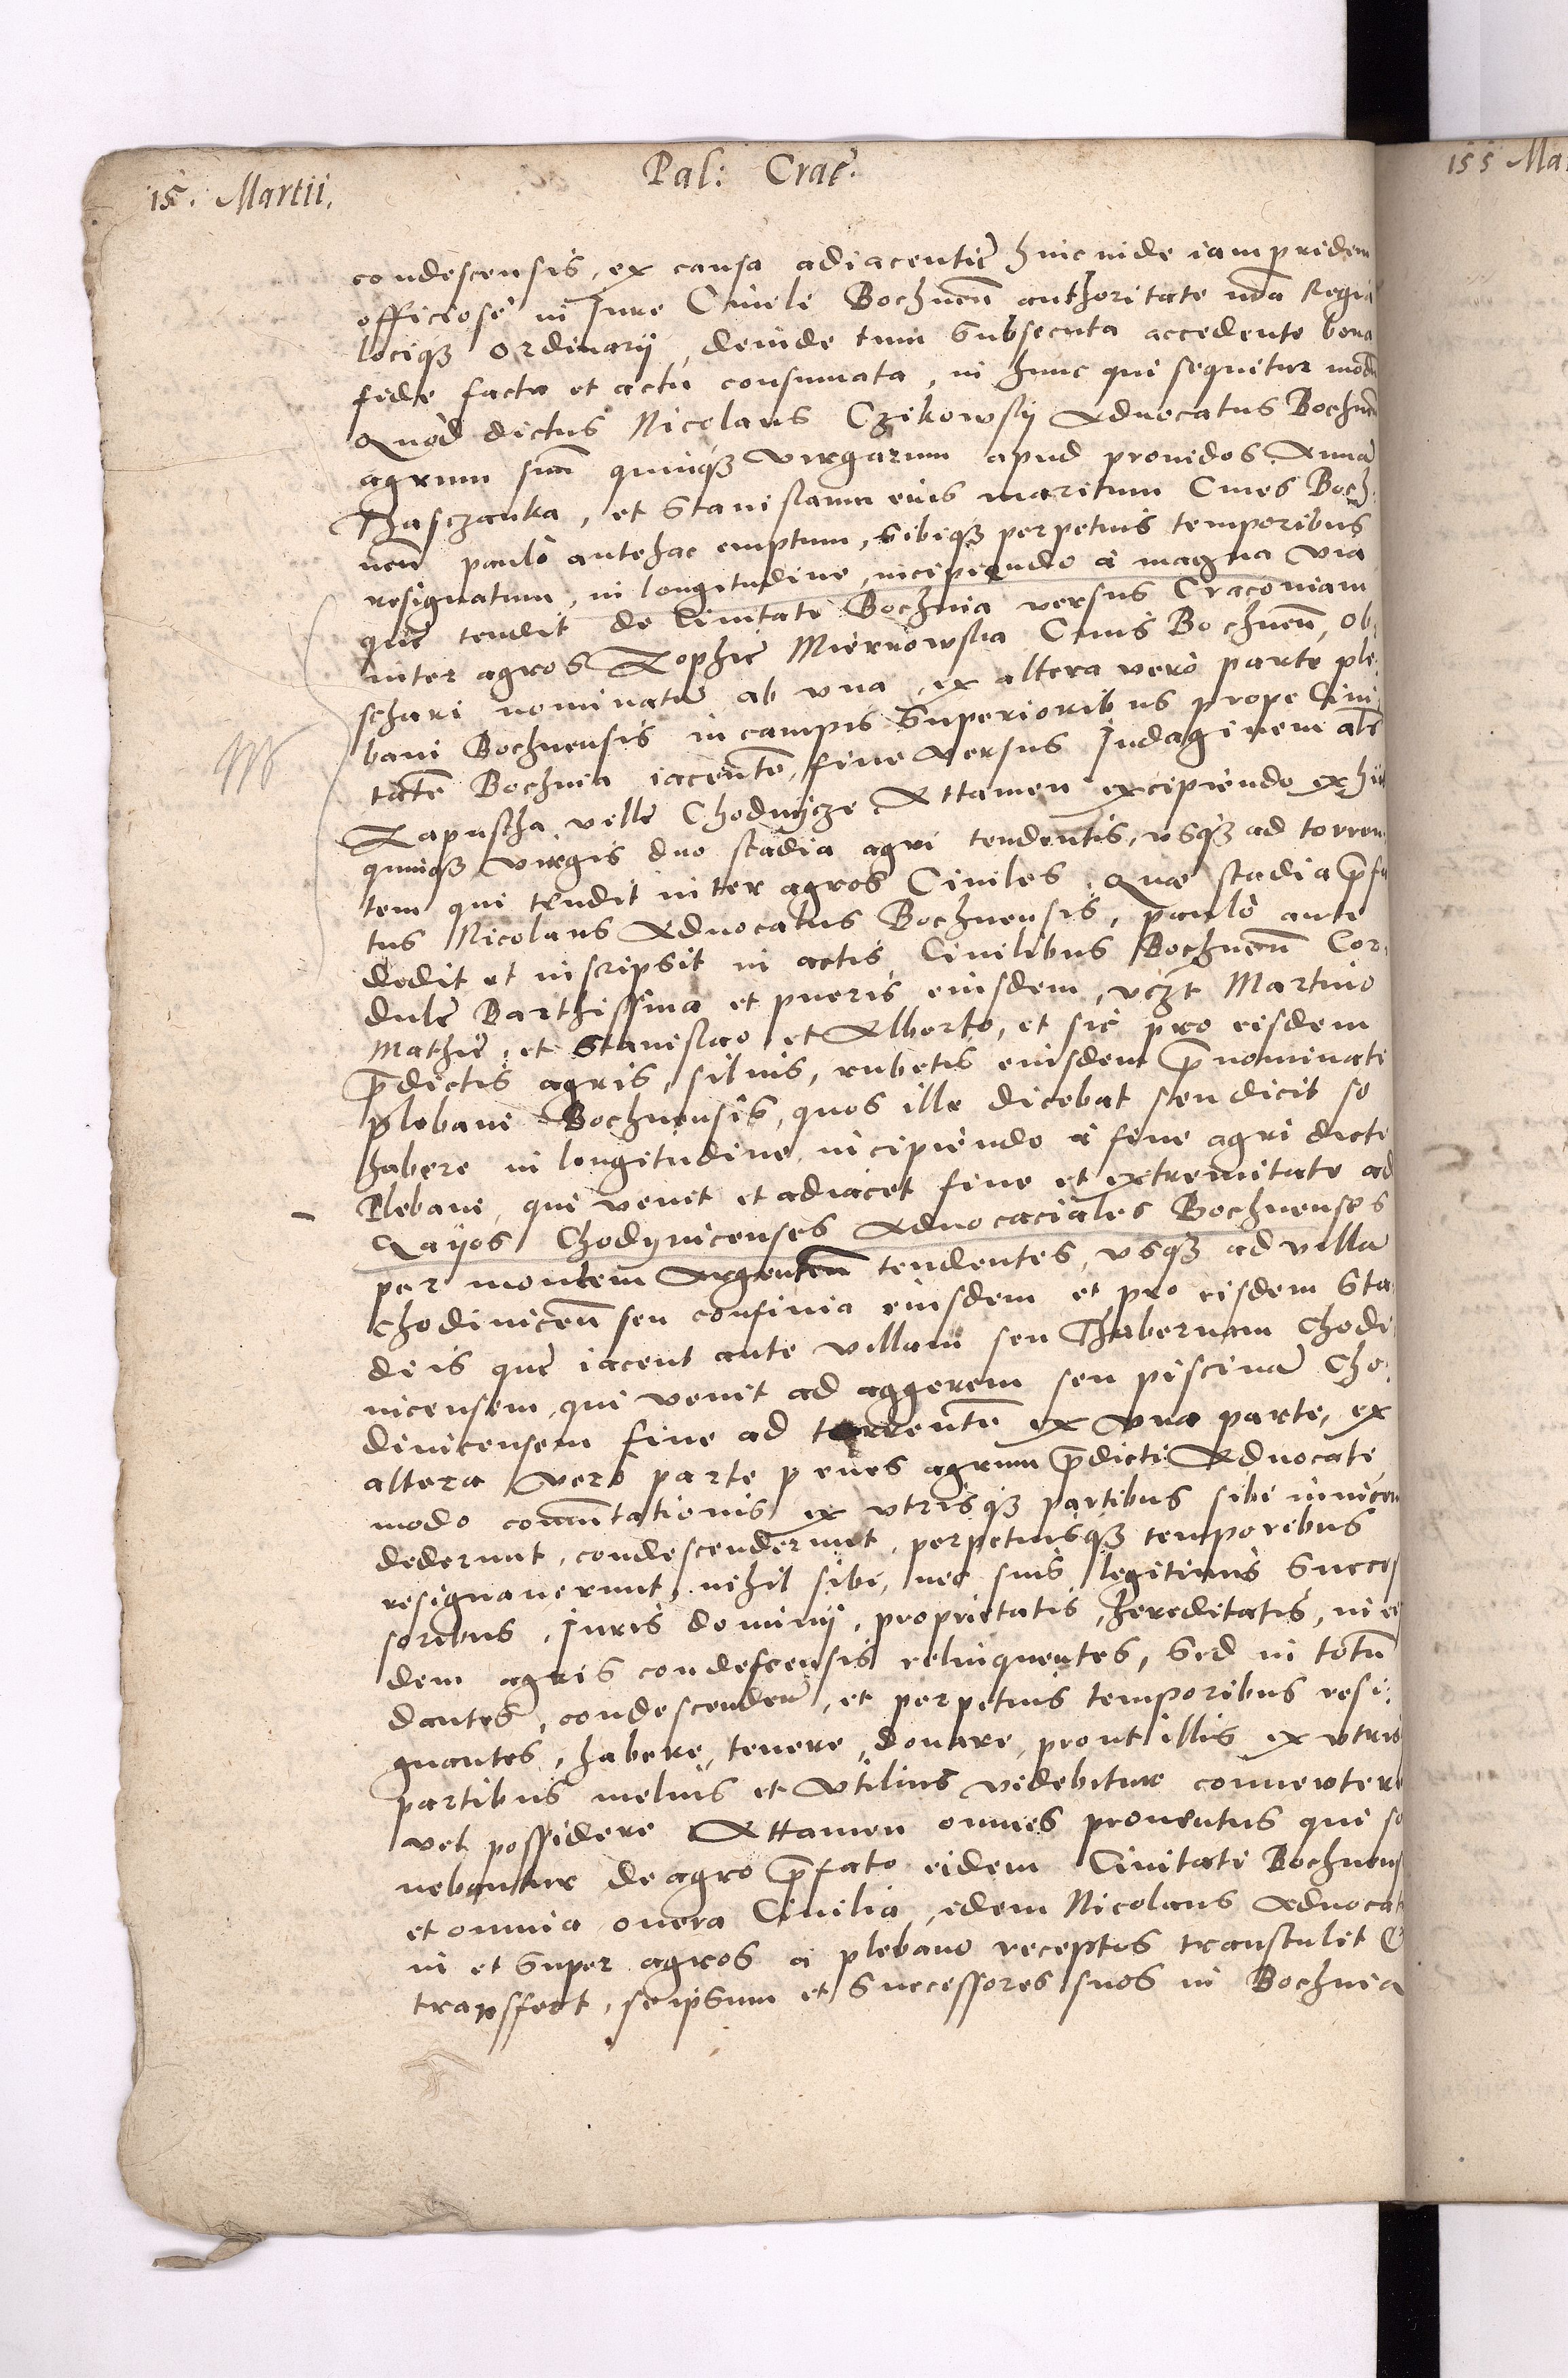 15. Martii.
Pal: Crac̄.
155 Ma
condescensis, ex causa adiacentię hincinde iampridem
officiosè in Iure Ciuili Bochneñ authoritate nr̄a Regia
lociq3 Ordinarij, deinde tum subsecuta accedente bona
fide facta et actu consumata, in hunc qui sequitur modū
Quòd dictus Nicolaus Czikowsky Aduocatus Bochneñ
agrum suū quinq3 virgarum apud prouidos Annā
Thasczanka, et Stanislaum eius maritum Ciues Boch
neñ paulò antehac emptum, sibiq3 perpetuis temporibus
resignatum, in longitudine, incipiendo à magna via
quę tendit de Ciuitate Bochnia versus Cracouiam
inter agros Zophię Miernowska Ciuis Bochneñ, Ob
schari nominatę ab vna, ex altera verò parte ple
bani Bochnensis in campis superioribus prope Ciui
tatē Bochnia iacentē, fine versus Indaginem als
Zapuscha velle Chodnycze. Attamen excipiendo ex hijs
quinq3 virgis duo stadia agri tendentis, vsq3 ad torren
tem qui tendit inter agros Ciuiles. Quæ stadia p̄fa
tus Nicolaus Aduocatus Bochnensis, paulò ante
dedit et inscripsit in actis Ciuilibus Bochneñ Cor
dulę Barthissina et pueris eiusdem, vcz̄t Martino
Mathię, et Stanislao et Alberto, et sic pro eisdem
p̄dictis agris, siluis, rubetis eiusdem p̄nominati
plebani Bochnensis, quos ille dicebat seu dicit se
habere in longitudine incipiendo à fine agri dicti
Plebani, qui venit et adiacet fine et extremitate ad
Layos Chodynicenses Aduocaciales Bochnenses
per montem Argenteū tendentes, vsq3 ad villā
Chodiniceñ seu confinia eiusdem et pro eisdem sta
deis quę iacent ante villam seu Thabernam Chodi
nicensem, qui venit ad aggerem seu piscinā Cho
dinicensem fine ad torrentē ex vna parte, ex
altera verò parte penes agrum p̄dicti Aduocati
modo com̄utationis ex vtrisq3 partibus sibi inuicem
dederunt, condescenderunt, perpetuisq3 temporibus
resignauerunt, nihil sibi, nec suis legitimis succes
soribus, Iuris dominij, proprietatis, hereditatis, in eis
dem agris condescensis relinquentes, sed in totū
dantes, condescendeñ, et perpetuis temporibus resi
gnantes, habere, tenere, donare, prout illis ex vtris
partibus melius et vtilius videbitur conuertere
vel possidere Attamen omnes prouentus qui so
uebantur de agro p̄fato eidem Ciuitati Bochnens
et omnia onera Ciuilia, idem Nicolaus Aduocat
in et super agros à plebano receptos transtulit
transfert, se ipsum et successores suos in Bochnia